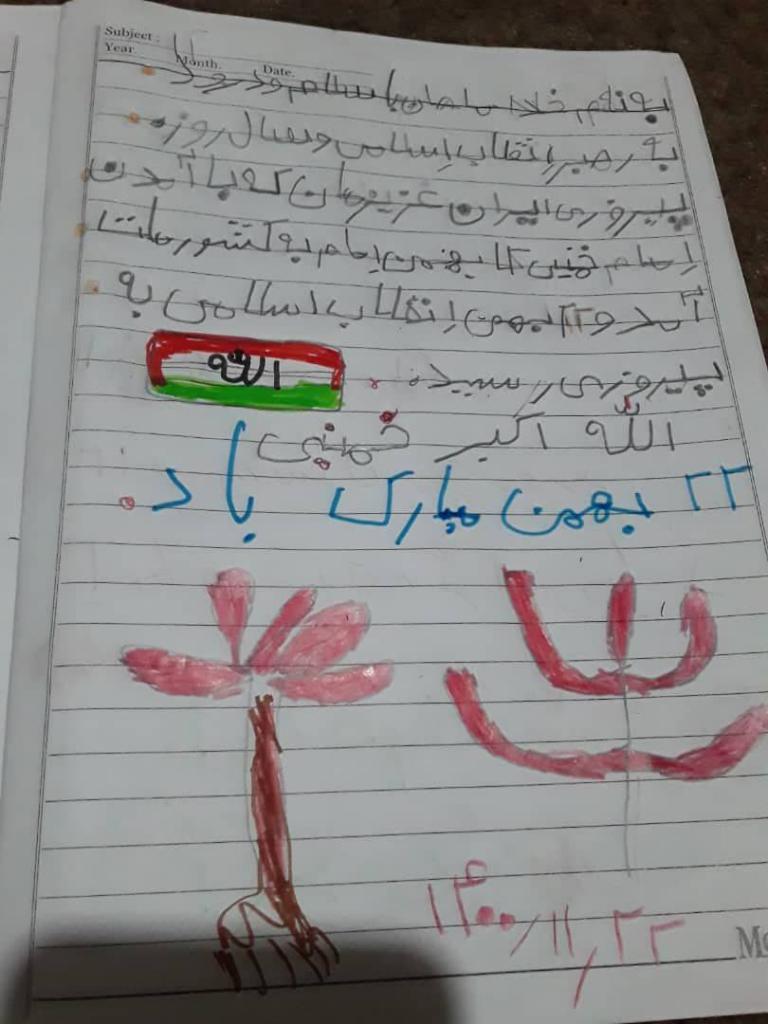 Subject:
Year. Month. Date.
به نام خدا با سلام و درود
به رهبر انقلاب اسلامی و سال روز
پیروزی ایران عزیزمان که با آمدن
امام خمینی ۱۲ بهمن امام به کشور ملت
آمد و ۲۲ بهمن انقلاب اسلامی به
پیروزی رسید.
الله
الله اکبر خمینی
۲۲ بهمن مبارک باد.
۱۴۰۰/۱۱/۲۲